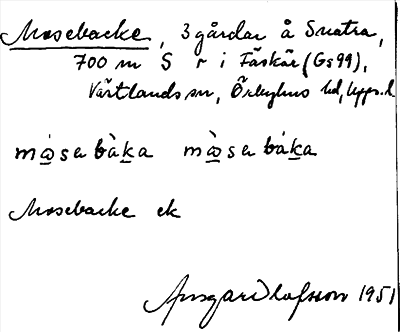 Mosebacke, 3 gårdar å Snatra,
700 m S r i Fäskär (Gs 99),
Vårtlands sn, Örbyhus hd, Upps. l
mὼsabàka mὼsabàka
Mosebacke ek
Ansgar Olofsson 1951